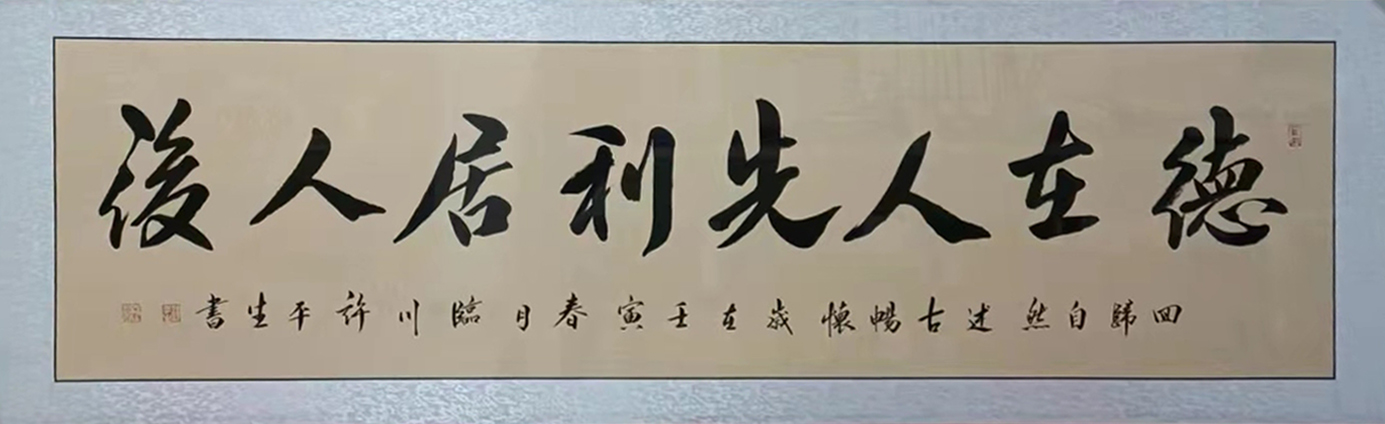 德在人先利居人後
回歸自然述古暢懷歲在壬寅春月臨川許平生書